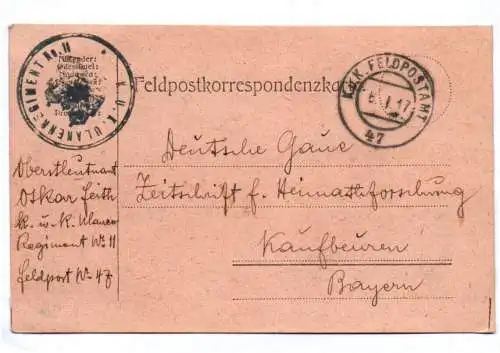 K. U. K. ULANENREGIMENT No. 11
Absender:
Feldpostkorrespondenzka
K.u.K. FELDPOSTAMT
6. I 17
47
Deutsche Gaue
Zeitschrift f. Heimathforschung
Kaufbeuren
Bayern
Oberstleutnant
Oskar Feith
k. u. K. Ulanen
Regiment No 11
Feldpost No 47